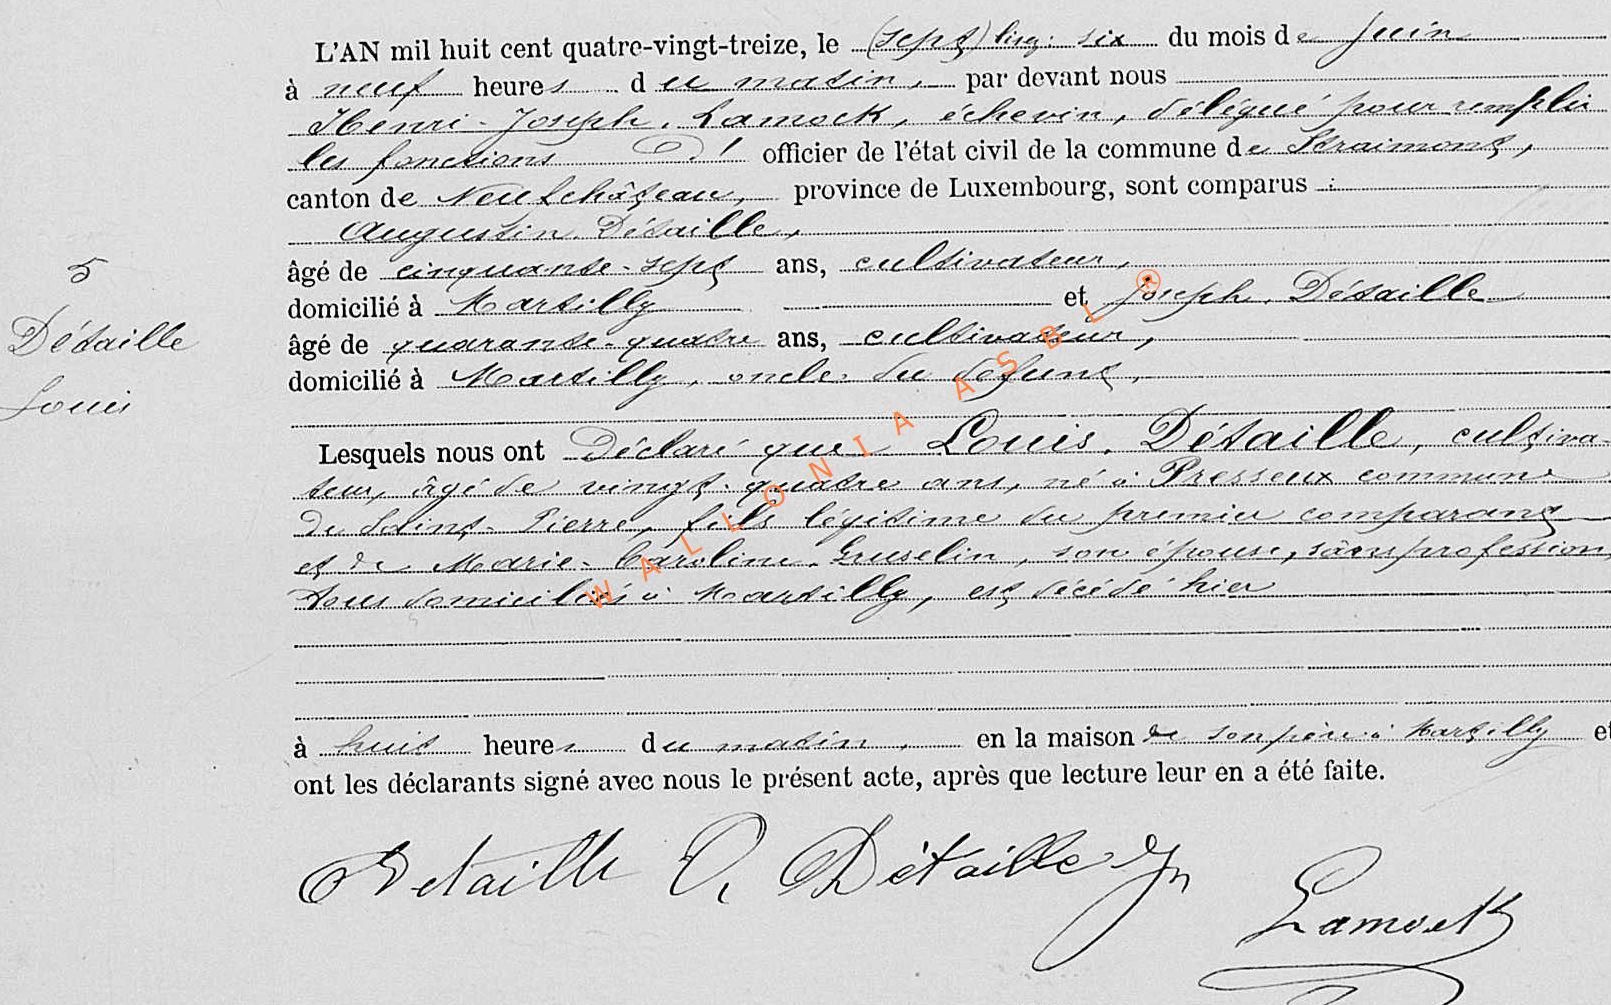 L'AN mil huit cent quatre-vingt-treize, le (sept) lisez: six du mois de juin
à neuf heures du matin, par devant nous
Henri-Joseph Lamock, échevin, délégué pour remplir
les fonctions d' officier de l'état civil de la commune de Straimont,
canton de Neufchâteau, province de Luxembourg, sont comparus :
Augustin Détaille,
5
âgé de cinquante-sept ans, cultivateur,
domicilié à Martilly et Joseph Détaille
Détaille
âgé de quarante-quatre ans, cultivateur,
domicilié à Martilly, oncle du défunt,
Louis
Lesquels nous ont déclaré que Louis Détaille, cultiva-
teur, âgé de vingt-quatre ans, né à Presseux commune
de Saint-Pierre, fils légitime du premier comparant
et de Marie-Caroline Guselin, son épouse, sans profession,
tous domiciliés à Martilly, est décédé hier
à huit heures du matin, en la maison de son père à Martilly et
ont les déclarants signé avec nous le présent acte, après que lecture leur en a été faite.
Detaille A, Détaille Jh
Lamock
WALLONIA ASBL ®